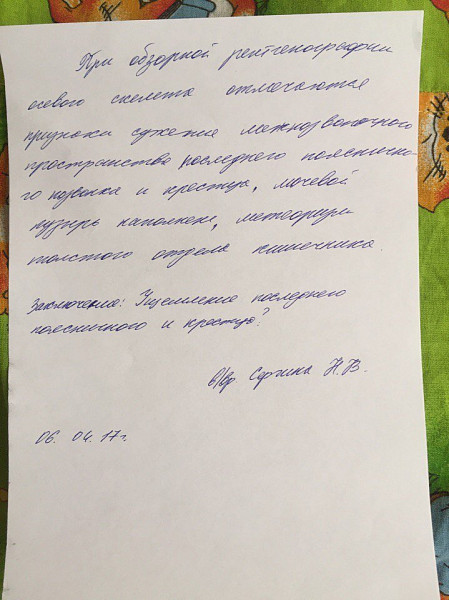 При обзорной рентгенографии
осевого скелета отмечаются
признаки сужения межпозвоночного
пространства последнего пояснично-
го позвонка и крестца, мочевой
пузырь наполнен, метеоризм
толстого отдела кишечника.
Заключение: Ущемление последнего
поясничного и крестца?
в/вр. Сергина Н.В.
06. 04. 17г.